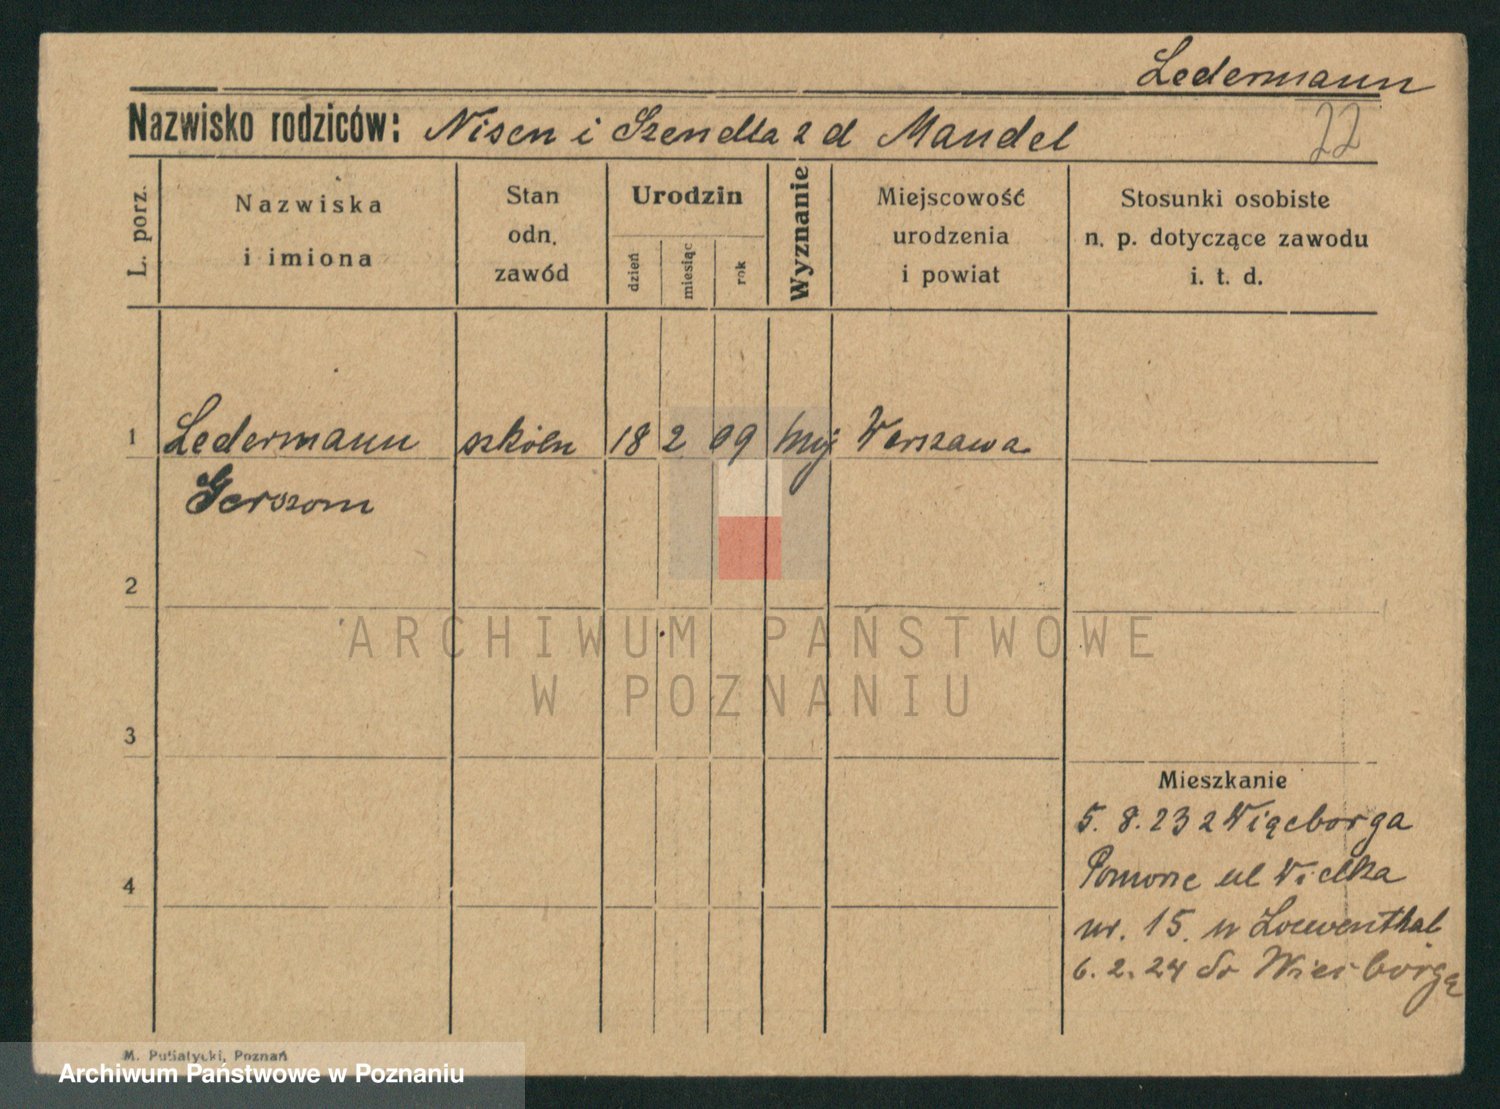 Ledermann
22
Nazwisko rodziców: Nisen i Szendla z d Mandel
L. porz.
Nazwiska
i imiona
Stan
odn.
zawód
Urodzin
dzień
miesiąc
rok
Wyznanie
Miejscowość
urodzenia
i powiat
Stosunki osobiste
n. p. dotyczące zawodu
i. t. d.
1 Ledermann szkóln 18 2 09 Warszawa
Gerszom
2
ARCHIWUM PAŃSTWOWE
W POZNANIU
3
Mieszkanie
5. 8. 23 z Więcborga
4
Pomorze ul Wielka
nr. 15. u Loewenthal
6. 2. 24 do
M. Putiatycki, Poznań
Archiwum Państwowe w Poznaniu